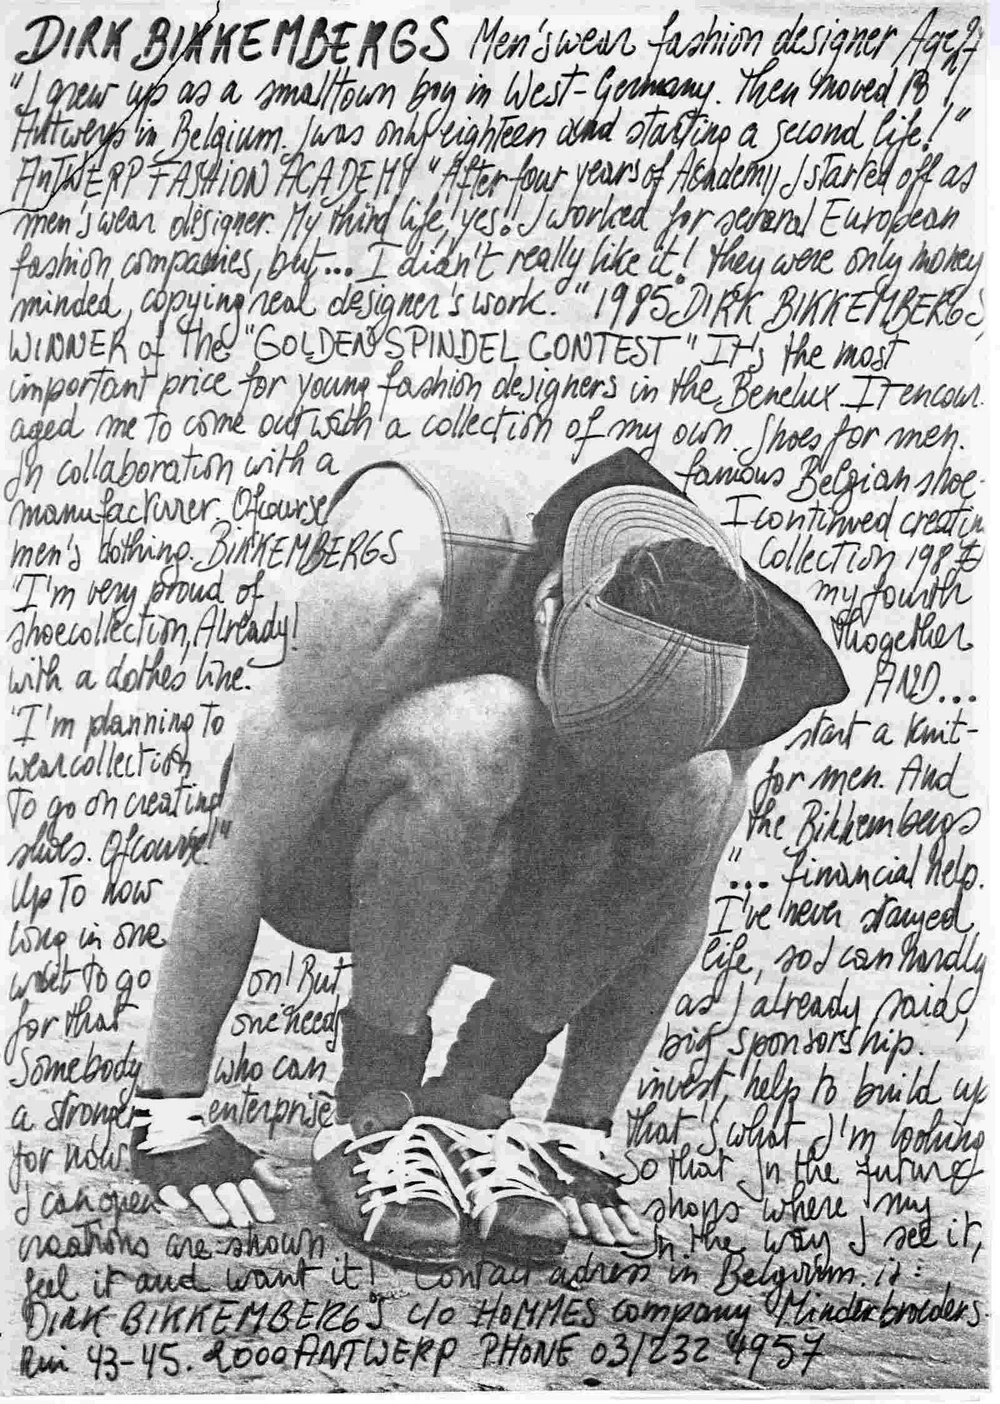 DIRK BIKKEMBERGS Men'swear fashion designer Age 27
"I grew up as a smalltown boy in West-Germany. Then moved to
Antwerp in Belgium. I was only eighteen and starting a second life!"
ANTWERP FASHION ACADEMY "After four years of Academy I started off as
men's wear designer. My third life, yes!! I worked for several European
fashion companies, but,... I didn't really like it! They were only money
minded, copying real designer's work." 1985 DIRK BIKKEMBERGS
WINNER of the "GOLDEN SPINDEL CONTEST" "It's the most
important price for young fashion designers in the Benelux. It encour-
aged me to come out with a collection of my own shoes for men.
In collaboration with a famous Belgian shoe-
manufacturer. Ofcourse I continued creatin
men's clothing. BIKKEMBERGS Collection 1987
"I'm very proud of my fourth
shoecollection, Already! thogether
with a clothes line. AND...
"I'm planning to start a knit-
wearcollection for men. And
to go on creating the Bikkembergs
shoes. Ofcourse!" "... financial help.
Up to now I've never stayed
long in one life, so I can hardly
wait to go on! But as I already said,
for that one needs big sponsorship.
Somebody who can invest, help to build up
a stronger enterprise that's what I'm looking
for now. So that in the future
I can open shops where my
creations are shown in the way I see it,
feel it and want it! Contact adress in Belgium is:
DIRK BIKKEMBERGS c/o HOMMES company Minderbroeders-
Rui 43-45. 2000 ANTWERP PHONE 03/232 4957